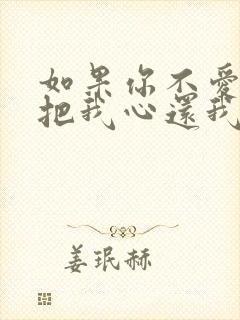 如果你不愛
把我心還我
姜珉赫